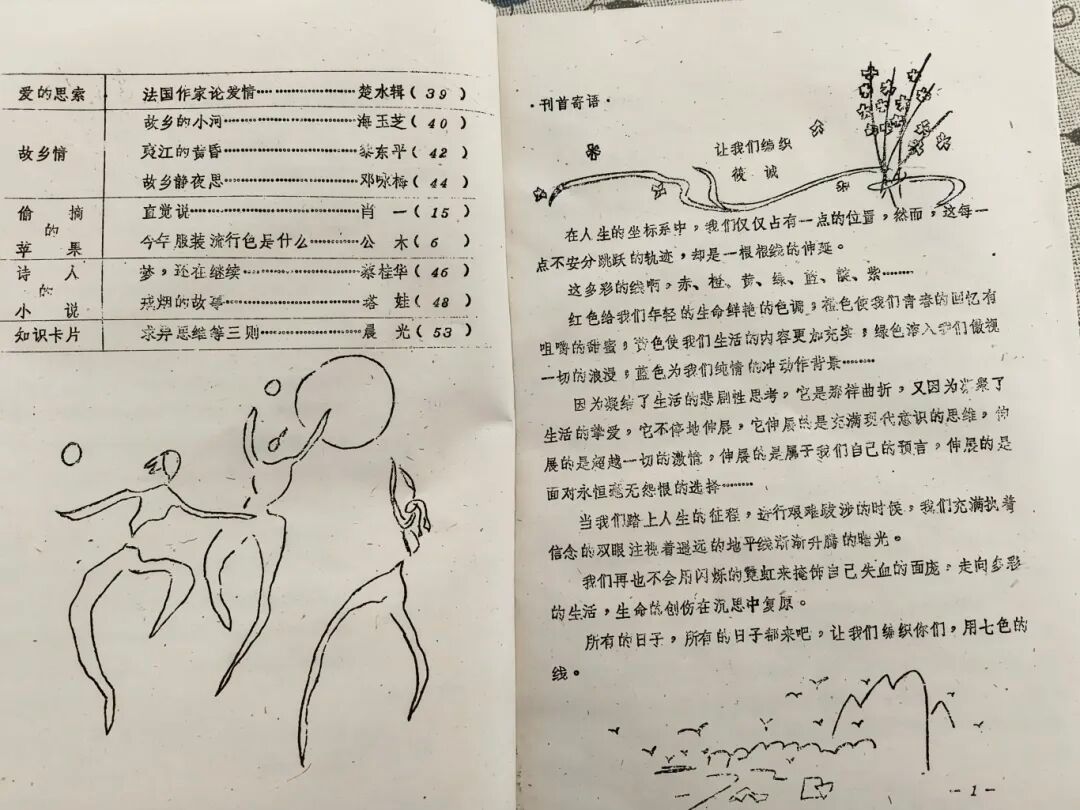 爱的思索 法国作家论爱情……………… 楚水辑( 39 )
故乡的小河……………………… 海玉芝( 40 )
故乡情 江的黄昏……………………… 东平( 42 )
故乡静夜思……………………… 邓咏梅( 44 )
偷摘的苹果 直觉说……………………… 肖 一( 15 )
今年服装流行色是什么………… 公 木( 6 )
诗人的小说 梦,还在继续………………… 蔡桂华( 46 )
戒烟的故事…………………… 塔 娃( 48 )
知识卡片 求异思维等三则……………… 晨 光( 53 )
·刊首寄语·
让我们编织
筱 诚
在人生的坐标系中,我们仅仅占有一点的位置,然而,这每一
点不安分跳跃的轨迹,却是一根根线的伸延。
这多彩的线啊,赤、橙、黄、绿、蓝、靛、紫………
红色给我们年轻的生命鲜艳的色调,橙色使我们青春的回忆有
咀嚼的甜蜜,黄色使我们生活的内容更加充实,绿色溶入我们傲视
一切的浪漫,蓝色为我们纯情的冲动作背景………
因为凝结了生活的悲剧性思考,它是那样曲折,又因为凝聚了
生活的挚爱,它不停地伸展,它伸展的是充满现代意识的思维,伸
展的是超越一切的激情,伸展的是属于我们自己的预言,伸展的是
面对永恒毫无怨恨的选择………
当我们踏上人生的征程,进行艰难跋涉的时候,我们充满执着
信念的双眼注视着遥远的地平线渐渐升腾的曙光。
我们再也不会用闪烁的霓虹来掩饰自己失血的面庞,走向多彩
的生活,生命的创伤在沉思中复原。
所有的日子,所有的日子都来吧,让我们编织你们,用七色的
线。
- 1 -